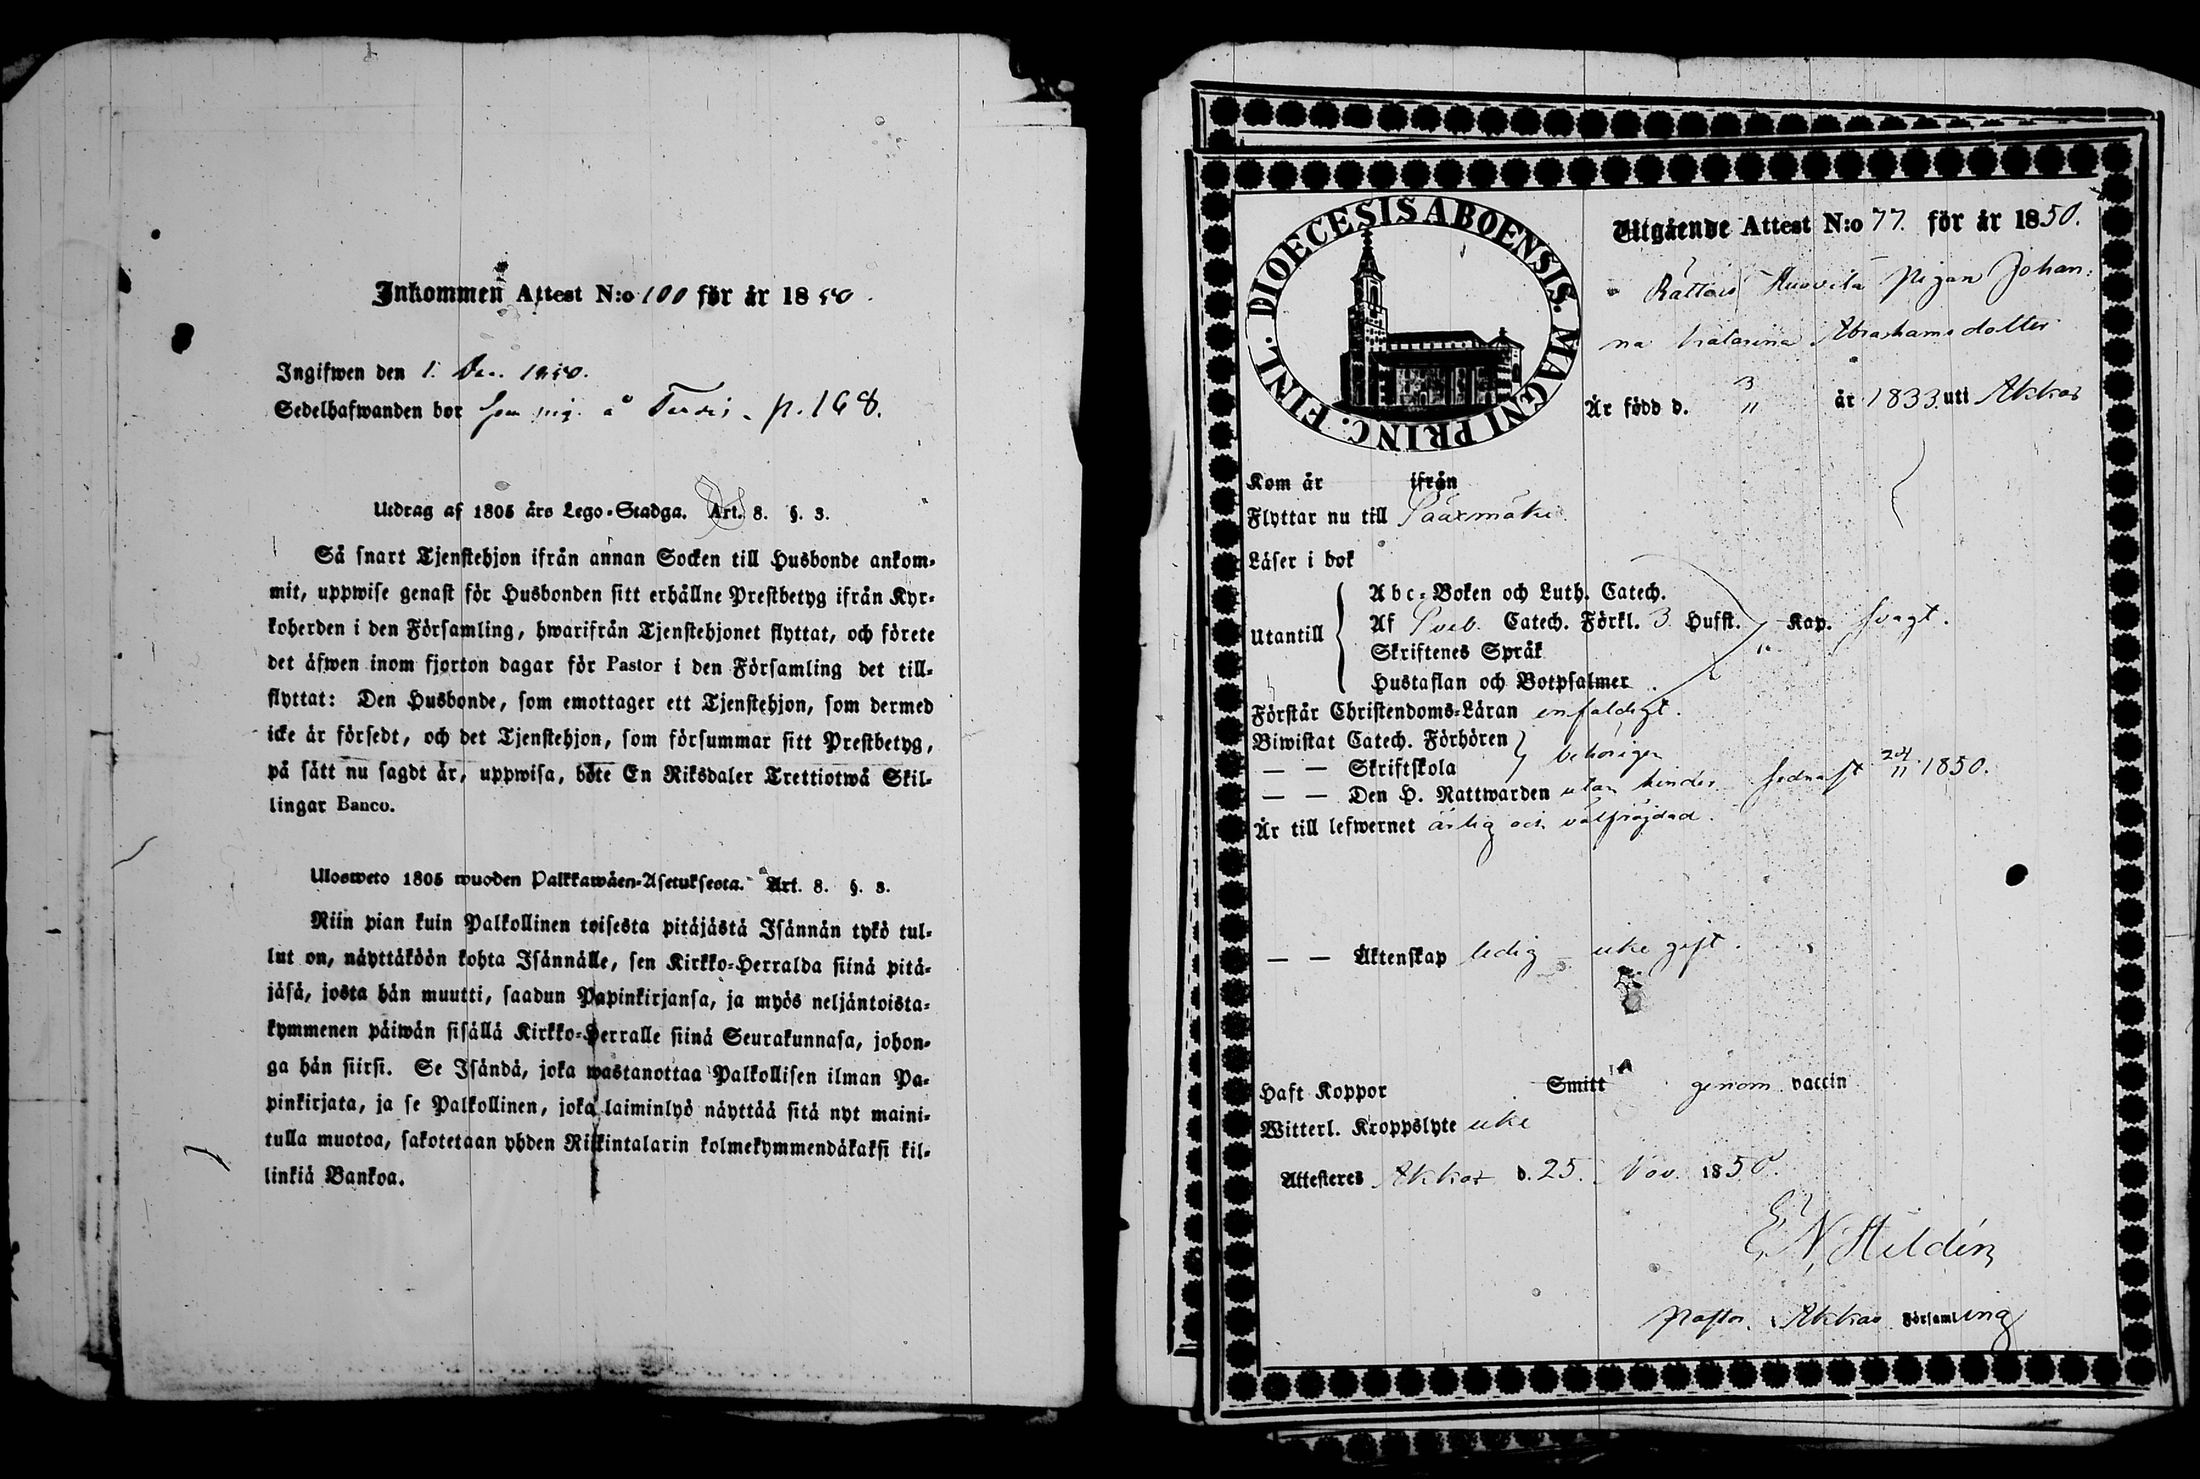 Inkommen Attest N:o 100 för år 1850.
Ingifwen den 1. Dec. 1850.
Sedelhafwanden bor som pig. å p. 168.
Utdrag af 1805 års Lego-Stadga. Art. 8. §. 3.
Så snart Tjenstehjon ifrån annan Socken till Husbonde ankom-
mit, uppwise genast för Husbonden sitt erhållne Prestbetyg ifrån Kyr-
koherden i den Församling, hwarifrån Tjenstehjonet flyttat, och förete
det äfwen inom fjorton dagar för Pastor i den Församling det till-
flyttat: Den Husbonde, som emottager ett Tjenstehjon, som dermed
icke är försedt, och det Tjenstehjon, som försummar sitt Prestbetyg,
på sätt nu sagdt är, uppwisa, böte En Riksdaler Trettiotwå Skil-
lingar Banco.
Ulosweto 1805 wuoden Palkkawäen-Asetuksesta. Art. 8. §. 3.
Niin pian kuin Palkollinen toisesta pitäjästä Isännän tykö tul-
lut on, näyttäköön kohta Isännälle, sen Kirkko-Herralda siinä pitä-
jäsä, josta hän muutti, saadun Papinkirjansa, ja myös neljäntoista-
kymmenen päiwän sisällä Kirkko-Herralle siinä Seurakunnasa, johon-
ga hän siirsi. Se Isändä, joka wastanottaa Palkollisen ilman Pa-
pinkirjata, ja se Palkollinen, joka laiminlyö näyttää sitä nyt maini-
tulla muotoa, sakotetaan yhden Riikintalarin kolmekymmendäkaksi kil-
linkiä Bankoa.
DIOECESIS ABOENSIS. MAGNI PRINC. FINL.
Utgående Attest N:o 77. för år 1850.
Rättois Huovila Pigan Johan-
na Katarina Abrahamsdotter
Är född d. 3/11 år 1833 uti Akkas
Kom år ifrån
Flyttar nu till Sääxmäki.
Läser i bok
Utantill
Abc-Boken och Luth. Catech.
Af Sveb. Catech. Förkl. 3 Hufst. Kap. svagt.
Skriftenes Språk
Hustaflan och Botpsalmer
Förstår Christendoms-Läran enfaldigt.
Biwistat Catech. Förhören
— — Skriftskola behörigen
— — Den H. Nattwarden utan hinder sednast 24/11 1850.
Är till lefwernet ärlig och välfräjdad.
— — Äktenskap ledig icke gift.
Haft Koppor Smitt genom vaccin
Witterl. Kroppslyte icke
Attesteres Akkas d. 25. Nov. 1850.
E. N. Hildén
Pastor i Akkas Församling